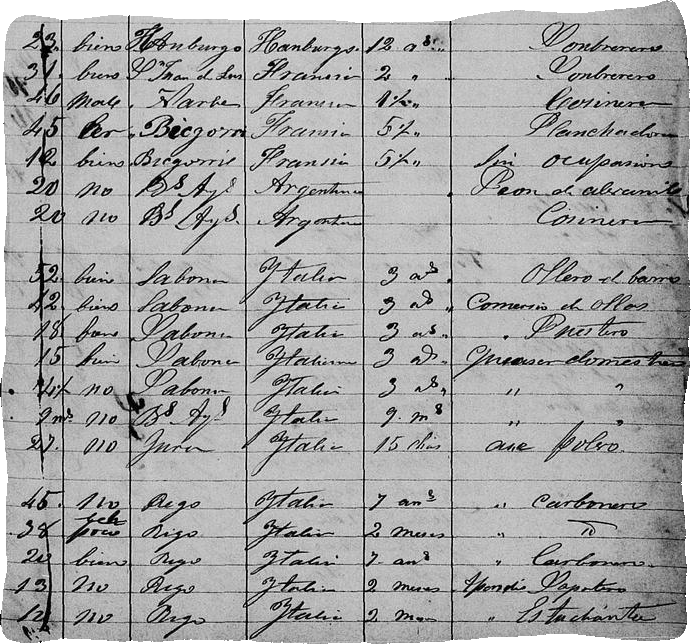 23. biens Hanburgo Hanburgo. 12 as Sonbrerero
31. biens Sn Juan d Lus Fransia 2 " Sonbrerero
46 male Fransia 1½ " Cosinera
45 ler Biegorri Fransia 5½ " Planchadora
12 biens Biegorrie Fransia 5½ " Sin ocupasion
20 no Bs Ays Argentina Peon de
20 no Bs Ays Argentina Cosinera
52. bien Sabona Ytalia 3 as Ollero d barro
42 biens Sabona Ytalia 3 as " Comersio de Ollas
18 Sabona Ytalia 3 as "
15 bien Sabona Ytaliana 3 as domestico
4½ no Sabona Ytalia 3 as " "
9 ms no Bs Ays Ytalia 9. ms " "
27. no Ytalia 15 dias
45. no Rigo Ytalia 7 ans " Carbonero
38 poco Rigo Ytalia 2 meses " "
20 biens Rigo Ytalia 7. ans " Carbonero.
13 no Rigo Ytalia 2 meses Apendis Sapatero
12 no Rigo Ytalia 2 " Estudiante